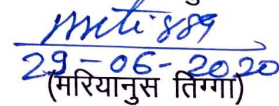 29-06-2020
(मरियानुस तिग्गा)